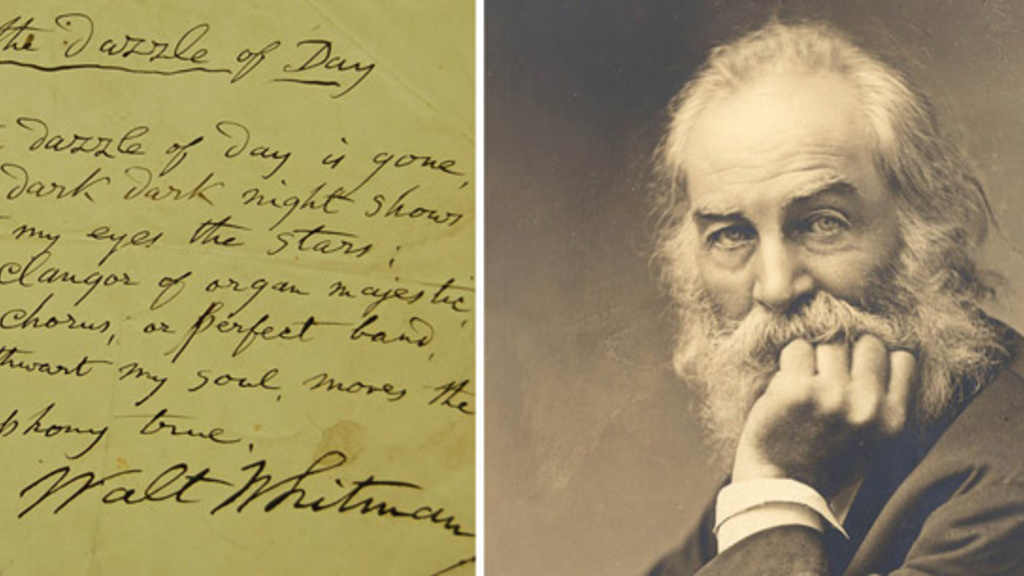 the Dazzle of Day
dazzle of Day is gone,
dark dark night shows
my eyes the stars;
clangor of organ majestic,
chorus, or perfect band,
thwart my soul, moves the
phony true.
Walt Whitman